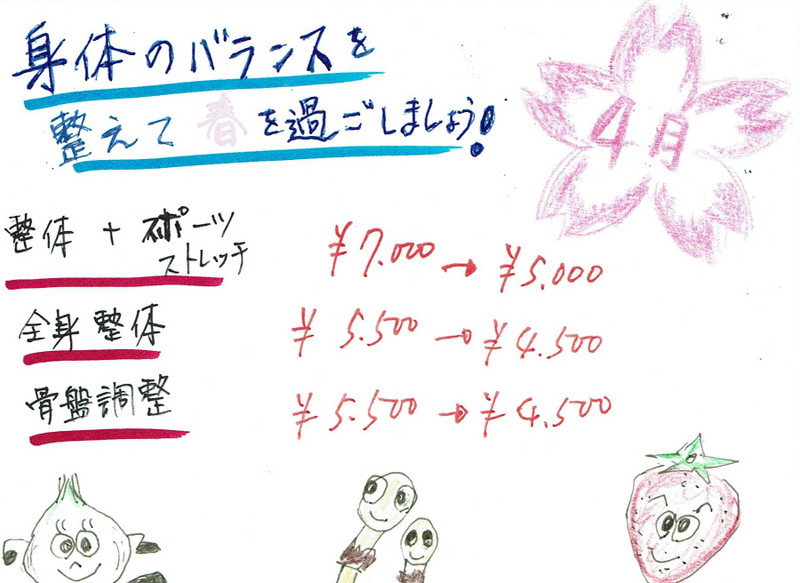 身体のバランスを
整えて春を過ごしましょう!
4月
整体 + スポーツ
ストレッチ
¥7.000 → ¥5.000
全身整体
¥5.500 → ¥4.500
骨盤調整
¥5.500 → ¥4.500